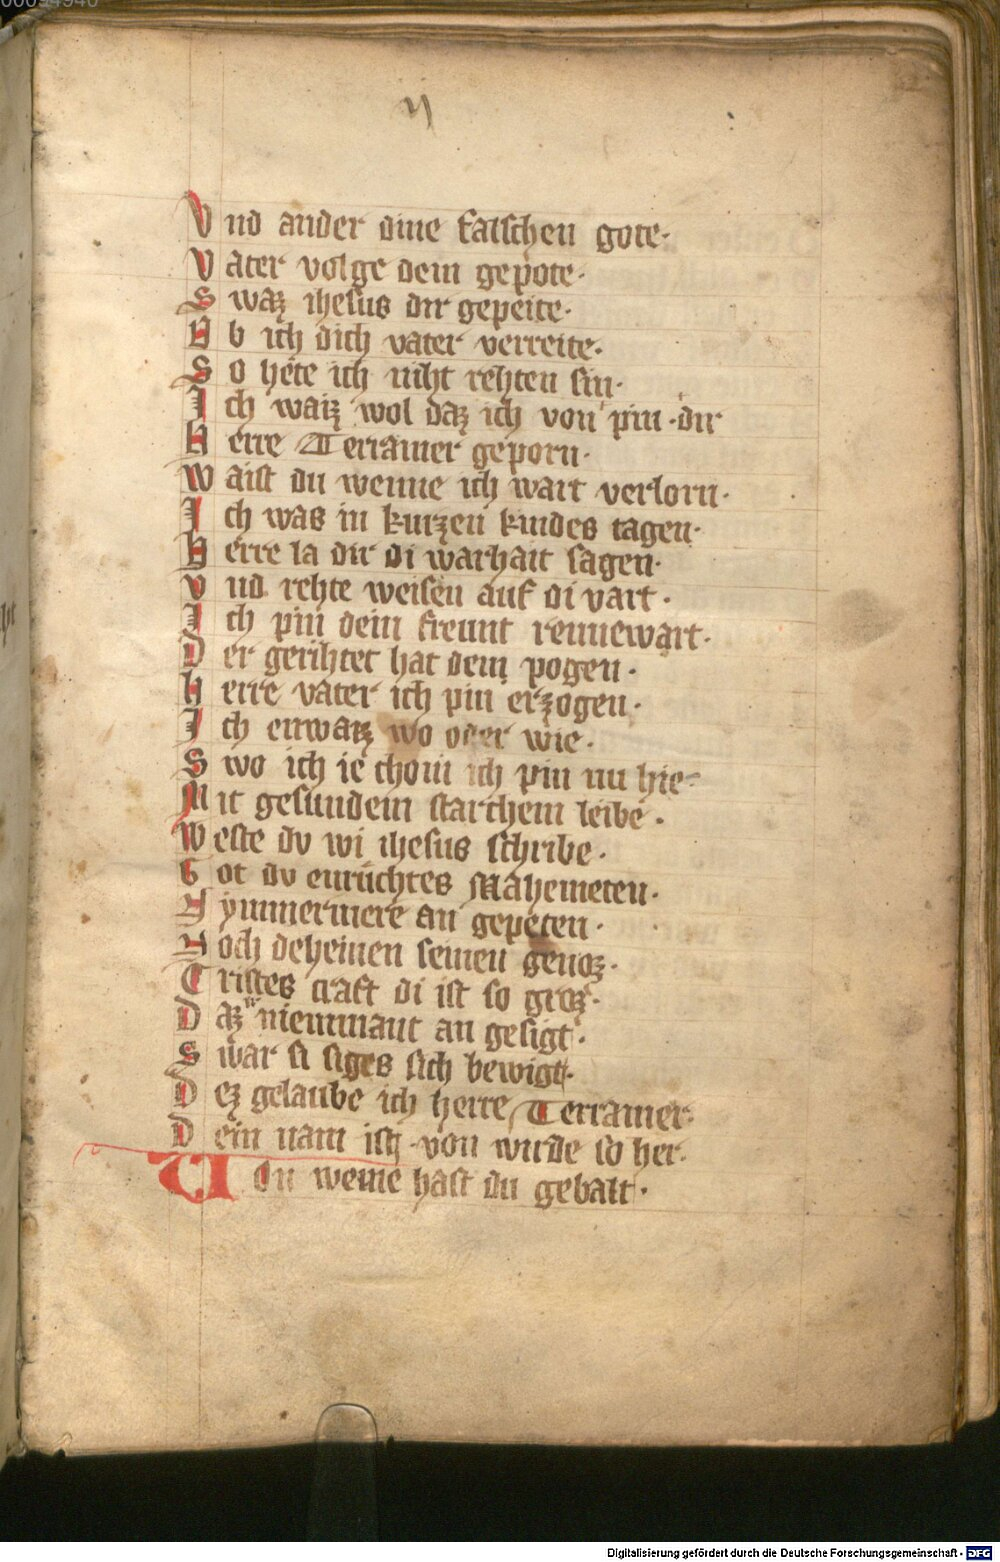 00094946
Vnd ander dine falschen gote·
Vater volge dem gepote·
Swaz ihesus dir gepeite·
Ob ich dich vater verreite·
So hete ich niht rehten sin·
Ich waiz wol daz ich von pin dir
Herre Terramer geporn·
Waist du wenne ich wart verlorn·
Ich was in kurzen kindes tagen·
Herre la dir di warhait sagen·
Vnd rehte weisen auf di vart·
Ich pin dein freunt rennewart·
Der gerihtet hat dein pogen·
Herre vater ich pin erzogen·
Ich enwaiz wo oder wie·
Swo ich ie chom ich pin nu hie·
Mit gesundem starchem leibe·
Weste dv wi ihesus schribe·
Got dv enruchtes Mahemeten·
Nymmermere an gepeten·
Noch deheinen seinen genoz·
Cristes craft di ist so groz·
Daz niemmant an gesigt·
Swar si siges sich bewigt·
Dez gelaube ich herre Terramer·
Dein nam ist von wirde so her·
Nu du wenie hast du gebalt·
Digitalisierung gefördert durch die Deutsche Forschungsgemeinschaft - DFG